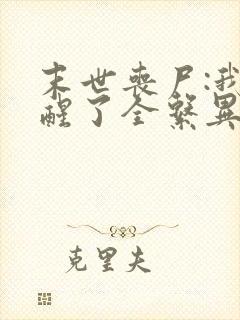 末世丧尸:我
醒了全系异
克里夫